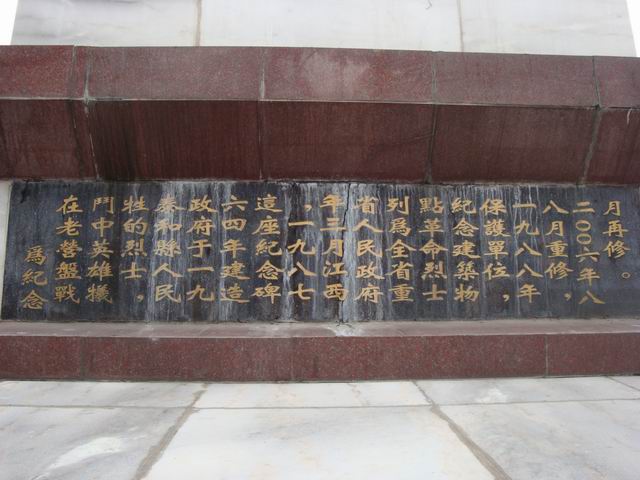 為紀念
在老營盤戰
鬥中英雄犧
牲的烈士，
泰和縣人民
政府于一九
六四年建造
這座紀念碑
，一九八七
年三月江西
省人民政府
列為全省重
點革命烈士
紀念建築物
保護單位，
一九八八年
八月重修，
二〇〇六年八
月再修。